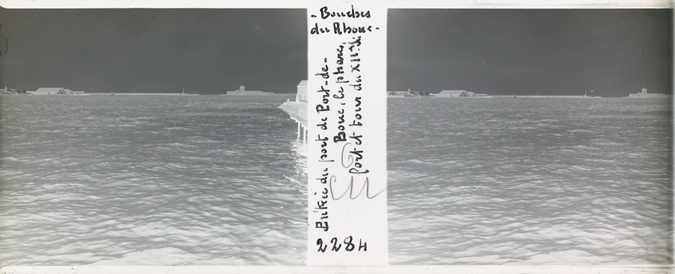 - Bouches
du Rhône -
Entrée du port de Port-de-
Bouc, le phare,
fort et tour du XIIe siè
2284